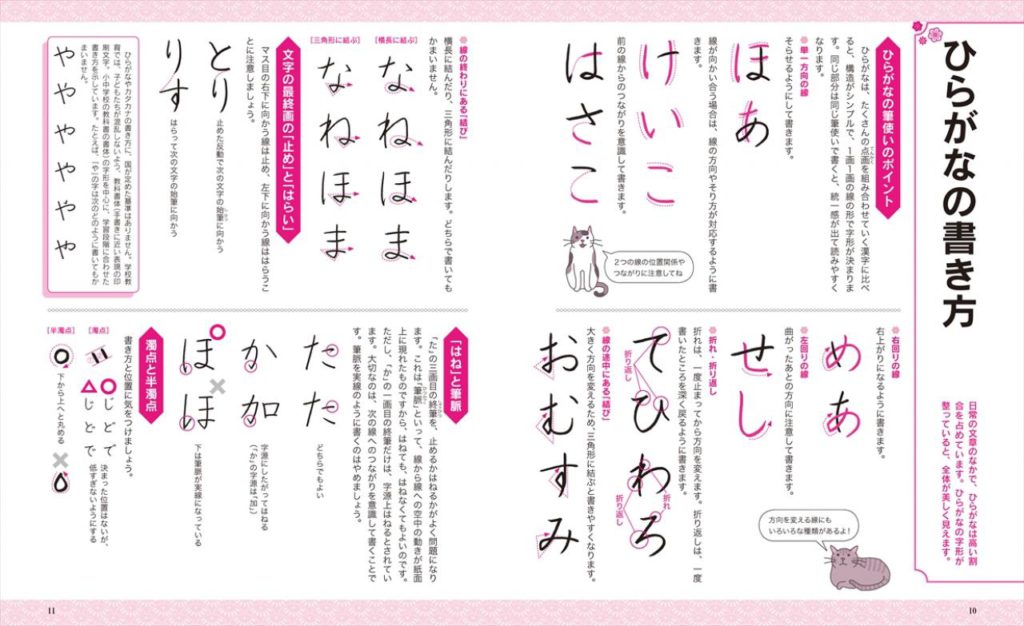 ひらがなの書き方
日常の文章のなかで、ひらがなは高い割
合を占めています。ひらがなの字形が
整っていると、全体が美しく見えます。
ひらがなの筆使いのポイント
ひらがなは、たくさんの点画を組み合わせていく漢字に比べ
ると、構造がシンプルで、1画1画の線の形で字形が決まりま
す。同じ部分は同じ筆使いで書くと、統一感が出て読みやすく
なります。
単一方向の線
そらせるようにして書きます。
ほあ
線が向かい合う場合は、線の方向やそり方が対応するように書
きます。
けいこ
前の線からのつながりを意識して書きます。
はさこ
2つの線の位置関係や
つながりに注意してね
右回りの線
右上がりになるように書きます。
めあ
左回りの線
曲がったあとの方向に注意して書きます。
せし
折れ・折り返し
折れは、一度止まってから方向を変えます。折り返しは、一度
書いたところを深く戻るように書きます。
てひわろ
折り返し
折れ
折り返し
線の途中にある「結び」
大きく方向を変えるため、三角形に結ぶと書きやすくなります。
おむすみ
方向を変える線にも
いろいろな種類があるよ!
10
線の終わりにある「結び」
横長に結んだり、三角形に結んだりします。どちらで書いても
かまいません。
[横長に結ぶ]
なねほま
[三角形に結ぶ]
なねほま
文字の最終画の「止め」と「はらい」
マス目の右下に向かう線は止め、左下に向かう線ははらうこ
とに注意しましょう。
とり
止めた反動で次の文字の始筆に向かう
りす
はらって次の文字の始筆に向かう
ひらがなやカタカナの書き方に、国が定めた基準はありません。学校教
育では、子どもたちが混乱しないよう、教科書体(手書きに近い表現の印
刷文字。小中学校の教科書の書体)の字形を中心に、学習段階に合わせた
書き方を示しています。たとえば、「や」の字は次のどのように書いてもか
まいません。
ややややややや
「はね」と筆脈
「た」の三画目の終筆を、止めるかはねるかがよく問題になり
ます。これは「筆脈」といって、線から線への空中の動きが紙面
上に現れたものですから、はねても、はねなくてもよいのです。
ただし、「か」の一画目の終筆だけは、字源上はねるとされてい
ます。大切なのは、次の線へのつながりを意識して書くことで
す。筆脈を実線のように書くのはやめましょう。
たた
どちらでもよい
か加
字源にしたがってはねる
(「か」の字源は「加」)
ほ×ほ
下は筆脈が実線になっている
濁点と半濁点
書き方と位置に気をつけましょう。
[濁点]
○じどで
△じどで
決まった位置はないが、
低すぎないようにする
[半濁点]
下から上へと丸める
×
11